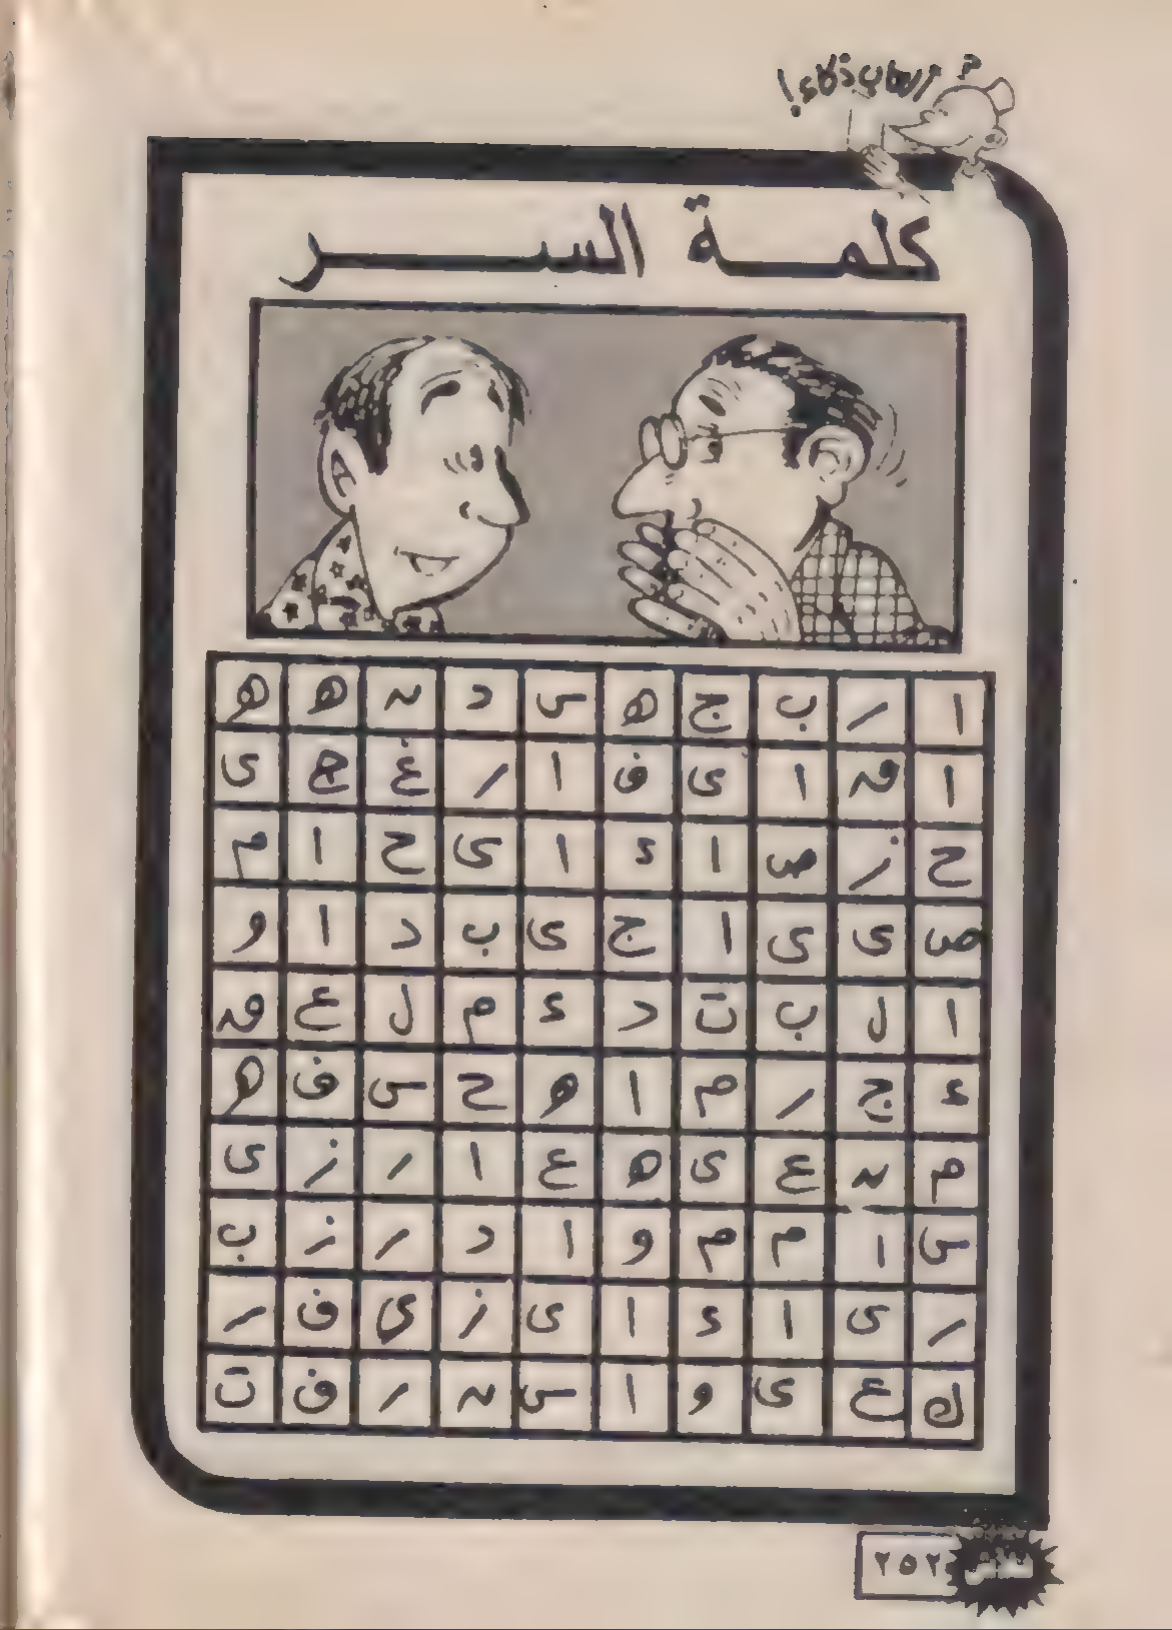 ألعاب ذكاء!
كلمة السر
ا ر ب ج ه س د ن ه ه
ا ق ا ى ف ا ر غ ج ى
ح ز ص ا ء ا ى ح ا م
ص ى ى ا ج ى ب د ا و
ا ل ب ت د ء م ل ع ق
ء ج ر م ا ه ح س ف ه
م ن ع ى ه ع ا ر ز ى
س ا م م و ا د ر ز ب
ر ى ا ء ا ى ز ى ف ر
ك ع ى و ا س ن ر ف ت
فلاش ٢٥٢